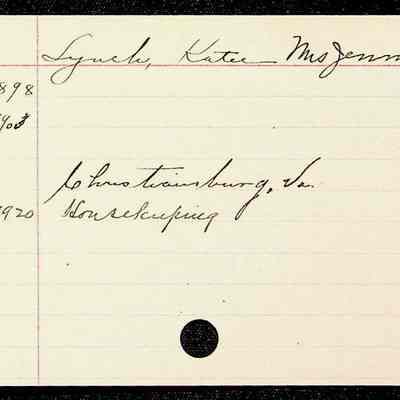 Lynch, Katie Mrs Jenn
898
1903
Christiansburg, Va.
1920 Housekeeping